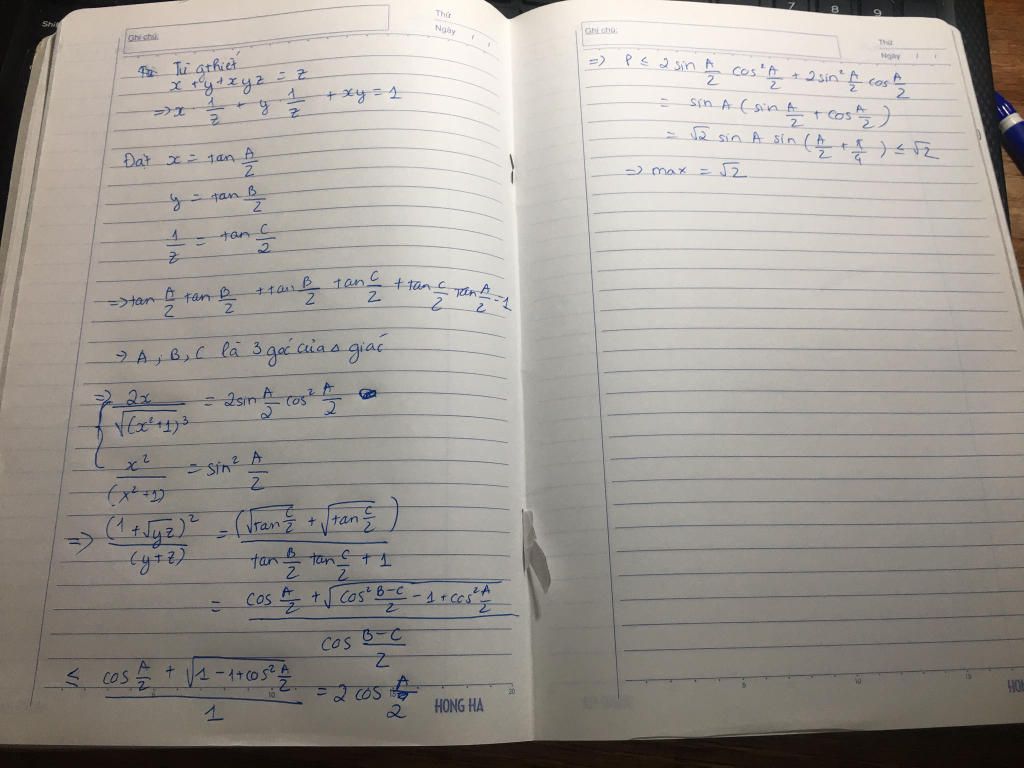 Ghi chú:
Thứ
Ngày / /
Từ gthiết
x + y + xyz = z
=> x 1/z + y 1/z + xy = 1
Đạt x = tan A/2
y = tan B/2
1/z = tan C/2
=> tan A/2 tan B/2 + tan B/2 tan C/2 + tan C/2 tan A/2 = 1
→ A, B, C là 3 góc của Δ giác
=> { 2x/√(x²+1)³ = 2 sin A/2 cos² A/2
x²/(x²+1) = sin² A/2
=> (1+√yz)²/(y+z) = (√tan C/2 + √tan C/2)/(tan B/2 tan C/2 + 1)
= (cos A/2 + √(cos² (B-C)/2 - 1 + cos² A/2))/(cos (B-C)/2)
≤ (cos A/2 + √(1-1+cos² A/2))/1 = 2 cos A/2
HONG HA
Ghi chú:
Thứ
Ngày / /
=> P ≤ 2 sin A/2 cos² A/2 + 2 sin² A/2 cos A/2
= sin A (sin A/2 + cos A/2)
= √2 sin A sin (A/2 + π/4) ≤ √2
=> max = √2